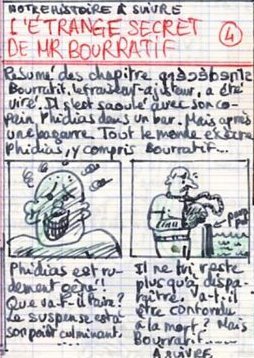 NOTRE HISTOIRE À SUIVRE
L'ÉTRANGE SECRET
DE MR BOURRATIF
4
Résumé des chapitre
Bourratif, le fraiseur-ajusteur, a été
viré. Il s'est saoulé avec son co-
pein Phidias dans un bar. Mais après
une bagarre. Tout le monde exècre
Phidias, y compris Bourratif....
Phidias est ru-
dement gêné!!
Que va-t-il faire?
Le suspense est à
son point culminant.
Il ne lui reste
plus qu'à dispa-
raître. Va-t-il
être contondu
à la mort? Mais
Bourratif......
A SUIVRE